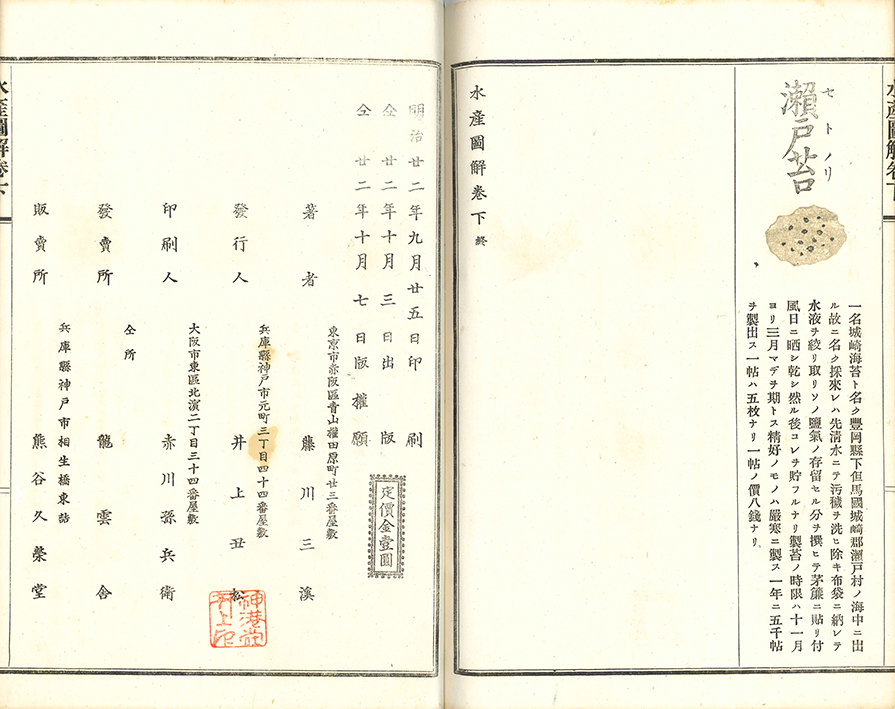 水產圖解卷下
瀨戶苔
セトノリ
一名城崎海苔ト名ク豐岡縣下但馬國城崎郡瀨戶村ノ海中ニ出
ル故ニ名ク採來レハ先清水ニテ汚穢ヲ洗ヒ除キ布袋ニ納レテ
水液ヲ絞リ取リソノ鹽氣ノ存留セル分ヲ撰ヒテ茅簾ニ貼リ付
風日ニ晒シ乾シ然ル後コレヲ貯フルナリ製苔ノ時限ハ十一月
ヨリ三月マデヲ期トス精好ノモノハ嚴寒ニ製ス一年ニ五千帖
ヲ製出ス一帖ハ五枚ナリ一帖ノ價八錢ナリ
水產圖解卷下終
明治廿二年九月廿五日印刷
仝廿二年十月三日出版
仝廿二年十月七日版權願
定價金壹圓
東京市赤阪區青山權田原町廿三番屋敷
著者 藤川三溪
兵庫縣神戶市元町三丁目四十四番屋敷
發行人 井上丑松
大阪市東區北濱二丁目三十四番屋敷
印刷人 赤川孫兵衛
仝所
發賣所 龍雲舍
兵庫縣神戶市相生橋東詰
販賣所 熊谷久榮堂
水產圖解卷下